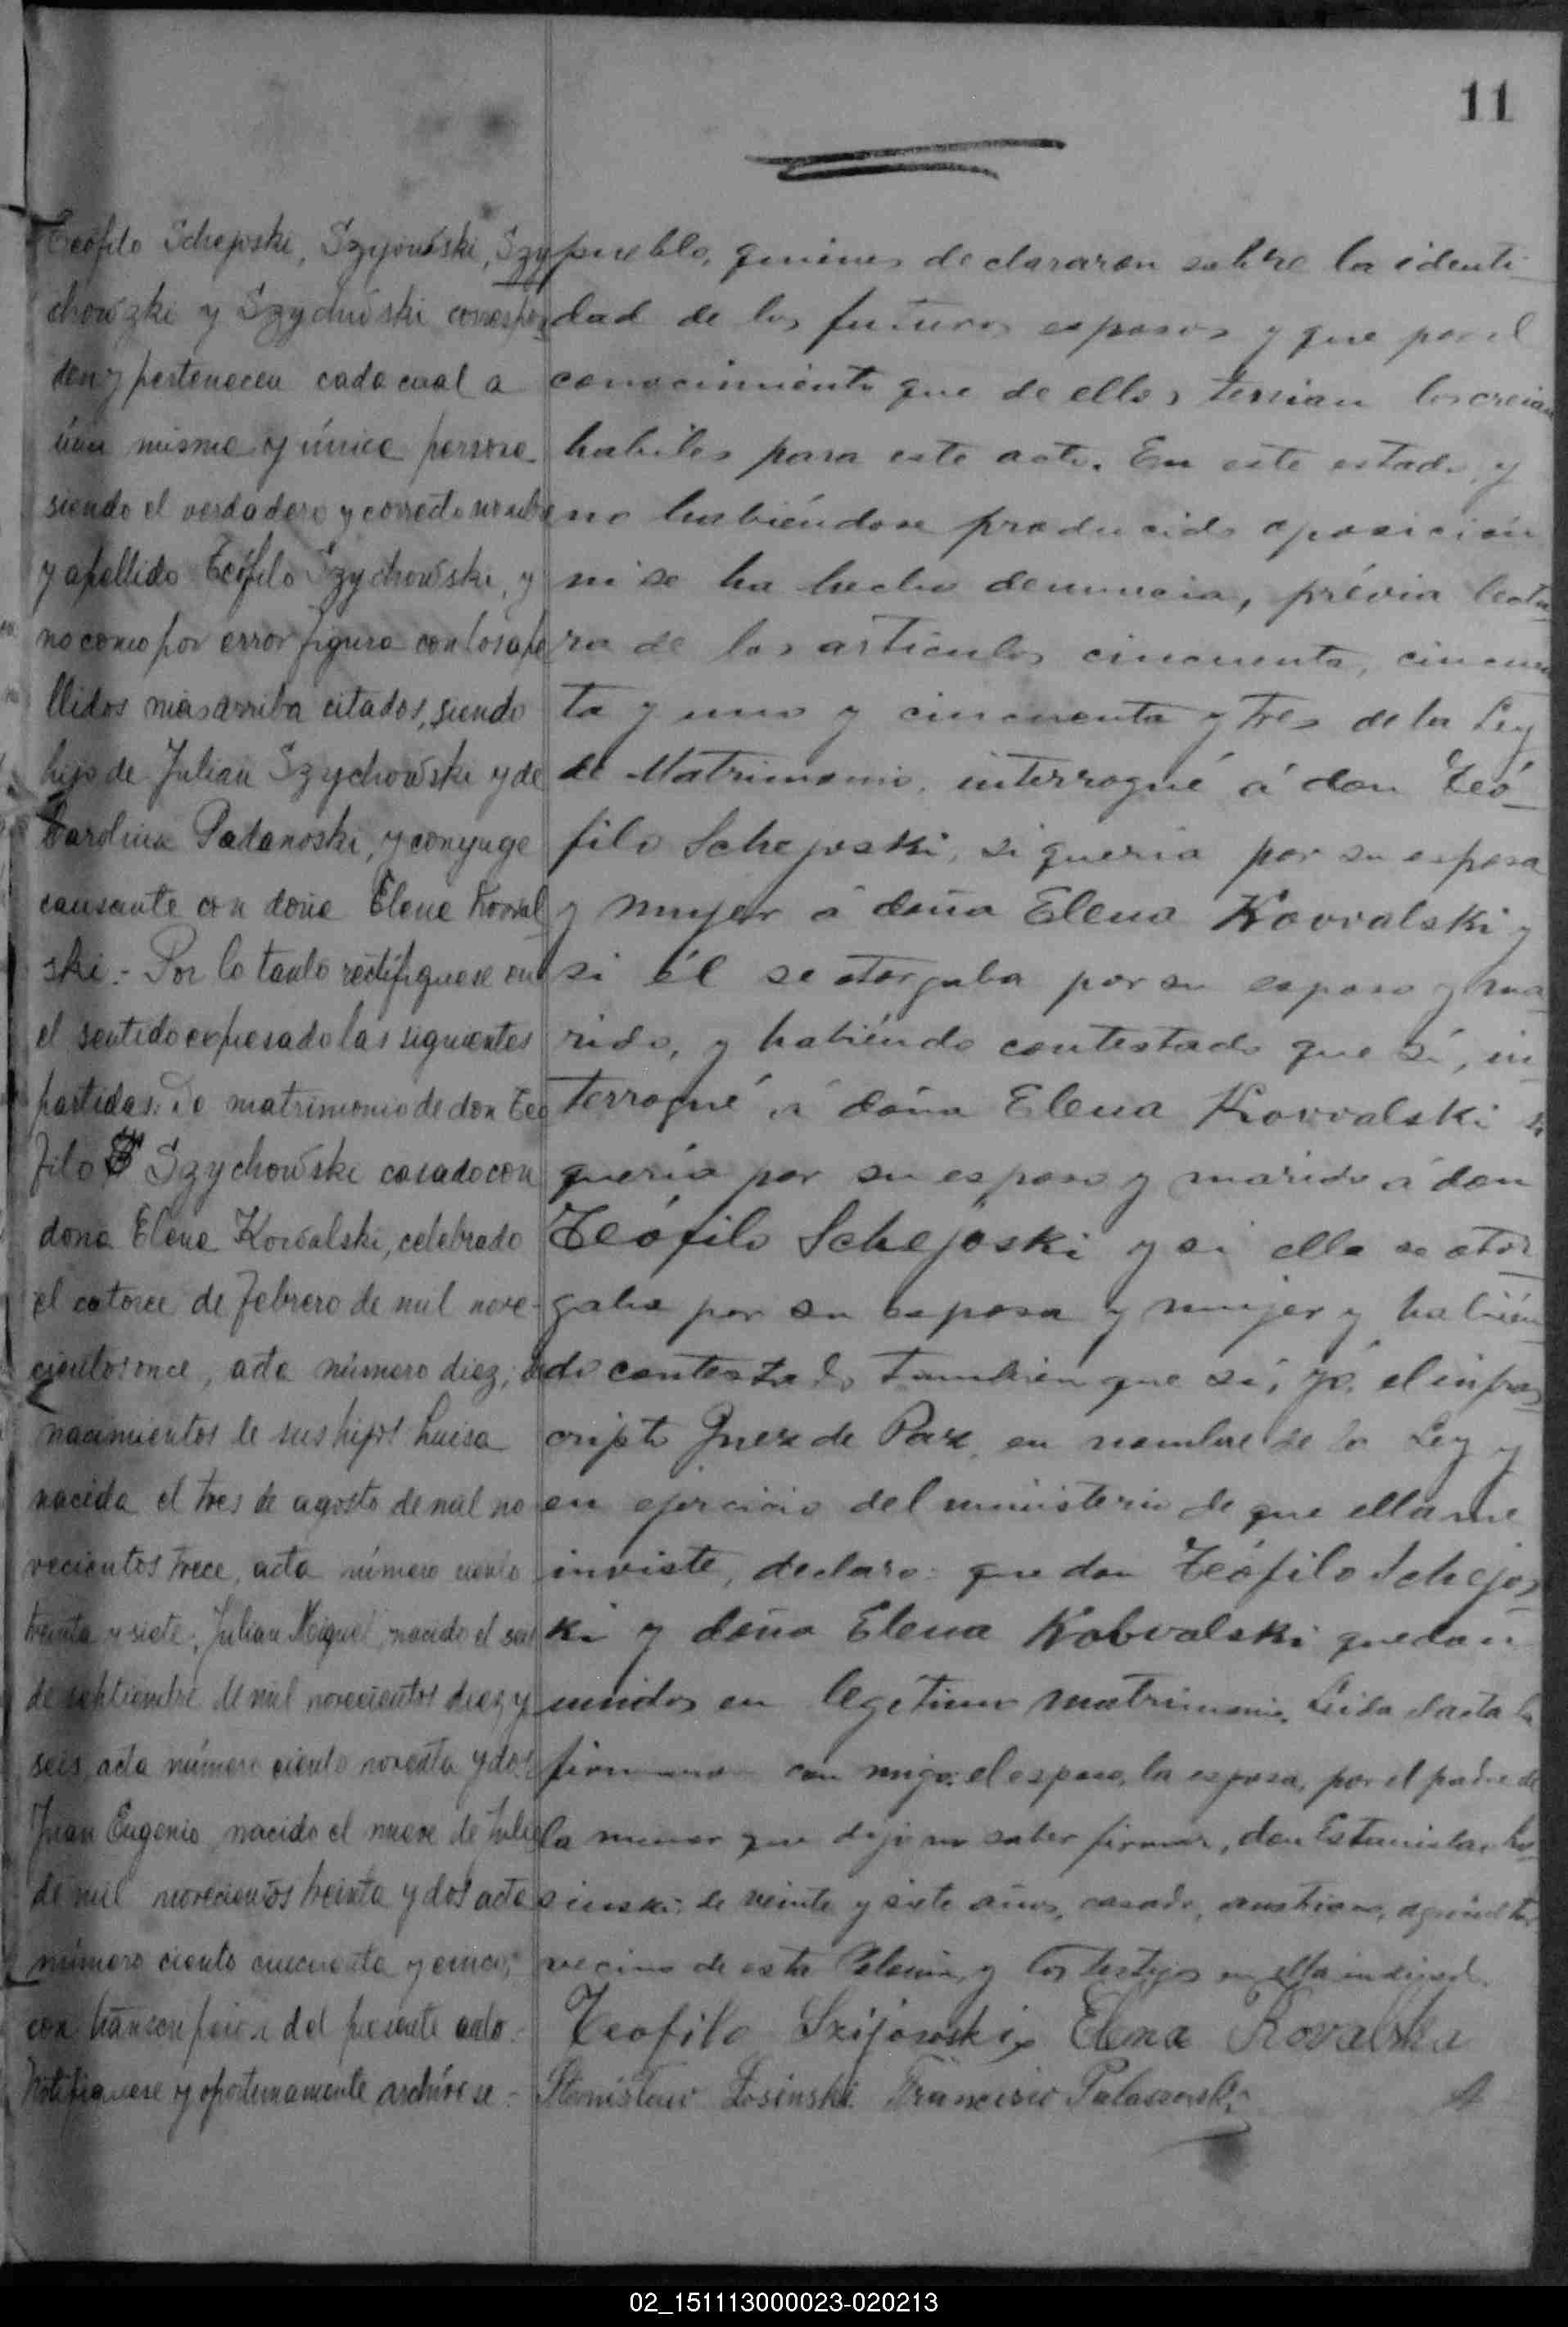 11
Teófilo Schejoski, Szyjowski, Szy
chowzki y Szychuwski correspon
den y pertenecen cada cual a
una misma y única persona
siendo el verdadero y correcto nombre
y apellido Teófilo Szychowski, y
no como por error figura con los ape
llidos más arriba citados, siendo
hijo de Julian Szychowski y de
Carolina Padanoski, y conyuge
causante con doña Elena Koval
ski.- Por lo tanto rectifíquese en
el sentido expresado las siguientes
partidas: De matrimonio de don Teó
filo Szychowski casado con
dona Elena Kowalski, celebrado
el catorce de Febrero de mil nove-
cientos once, acta número diez; de
nacimientos de sus hijos Luisa
nacida el tres de agosto de mil no
vecientos trece, acta número ciento
treinta y siete, Julian Miguel, nacido el seis
de septiembre de mil novecientos diez y
seis, acta número ciento noventa y dos
Juan Eugenio, nacido el nueve de Julio
de mil novecientos treinta y dos acta
número ciento cincuenta y cinco,
con transcripcion del presente auto.
Notifiquese y oportunamente archívese.-
pueblo, quienes declararon sobre la identi-
dad de los futuros esposos y que por el
conocimiento que de ellos tenian los creian
habiles para este acto. En este estado, y
no habiéndose producido oposición
ni se ha hecho denuncia, prévia lectu-
ra de los artículos cincuenta, cincuen
ta y uno y cincuenta y tres de la Ley
de Matrimonio, interrogué á don Teó-
filo Schejoski, si queria por su esposa
y mujer á doña Elena Kovvalski y
si él se otorgaba por su esposo y ma
rido, y habiéndo contestado que sí, in-
terrogué á doña Elena Kovvalski si
quería por su esposo y marido á don
Teófilo Schejoski y si ella se otor
gaba por su esposa y mujer y habién
do contestado tambien que sí, yó, el infras
cripto Juez de Paz, en nombre de la Ley y
en ejercicio del ministerio de que ella me
inviste, declaro: que don Teófilo Schejos
ki y doña Elena Kovvalski quedan
unidos en legítimo matrimonio. Leida el acta la
firmaron con migo: el esposo, la esposa, por el padre de
la menor que dijo no saber firmar, don Estanislao Lo
sinski de veinte y siete años, casado, austriaco, agricultor
vecino de esta Colonia y los testigos en ella indicados
Teofilo Szijowski Elena Kovalska
Stanislaw Losinski Francisco Palaszowski
02_151113000023-020213